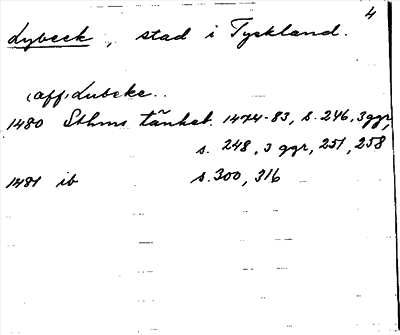 4
Lybeck, stad i Tyskland.
(aff. Lubeke..
1480 Sthms tänkeb. 1474-83, s. 246, 3 ggr,
s. 248, 3 ggr, 251, 258
1481 ib s. 300, 316